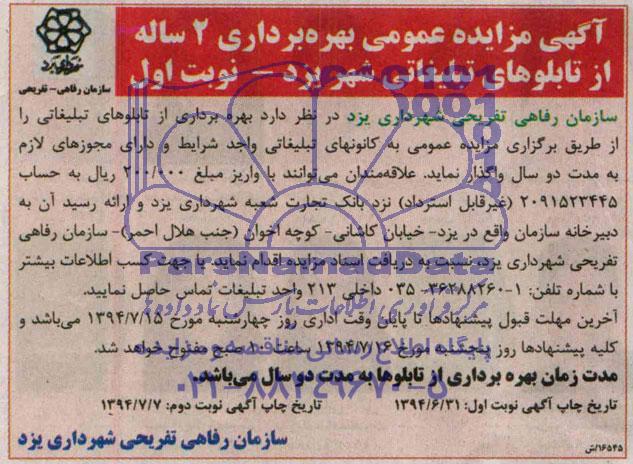 آگهی مزایده عمومی بهره‌برداری ۲ ساله
از تابلوهای تبلیغاتی شهر یزد - نوبت اول
شهرداری یزد
سازمان رفاهی - تفریحی
سازمان رفاهی تفریحی شهرداری یزد در نظر دارد بهره برداری از تابلوهای تبلیغاتی را
از طریق برگزاری مزایده عمومی به کانونهای تبلیغاتی واجد شرایط و دارای مجوزهای لازم
به مدت دو سال واگذار نماید. علاقه‌مندان می‌توانند با واریز مبلغ ۲۰۰/۰۰۰ ریال به حساب
۲۰۹۱۵۲۳۴۴۵ (غیرقابل استرداد) نزد بانک تجارت شعبه شهرداری یزد و ارائه رسید آن به
دبیرخانه سازمان واقع در یزد- خیابان کاشانی- کوچه اخوان (جنب هلال احمر)- سازمان رفاهی
تفریحی شهرداری یزد، نسبت به دریافت اسناد مزایده اقدام نمایند یا جهت کسب اطلاعات بیشتر
با شماره تلفن: ۱-۳۶۲۸۸۲۶۰-۰۳۵ داخلی ۲۱۳ واحد تبلیغات تماس حاصل نمایید.
آخرین مهلت قبول پیشنهادها تا پایان وقت اداری روز چهارشنبه مورخ ۱۳۹۴/۷/۱۵ می‌باشد و
کلیه پیشنهادها روز پنجشنبه مورخ ۱۳۹۴/۷/۱۶ ساعت ۱۰ صبح مفتوح خواهد شد.
مدت زمان بهره برداری از تابلوها به مدت دو سال می‌باشد.
تاریخ چاپ آگهی نوبت اول: ۱۳۹۴/۶/۳۱ تاریخ چاپ آگهی نوبت دوم: ۱۳۹۴/۷/۷
سازمان رفاهی تفریحی شهرداری یزد
۱۶۵۴۵/ش
ParsNamadData
مرکز فرآوری اطلاعات پارس نماد داده ها
پایگاه اطلاع رسانی مناقصه و مزایده
۰۲۱-۸۸۳۴۹۶۷۰-۵